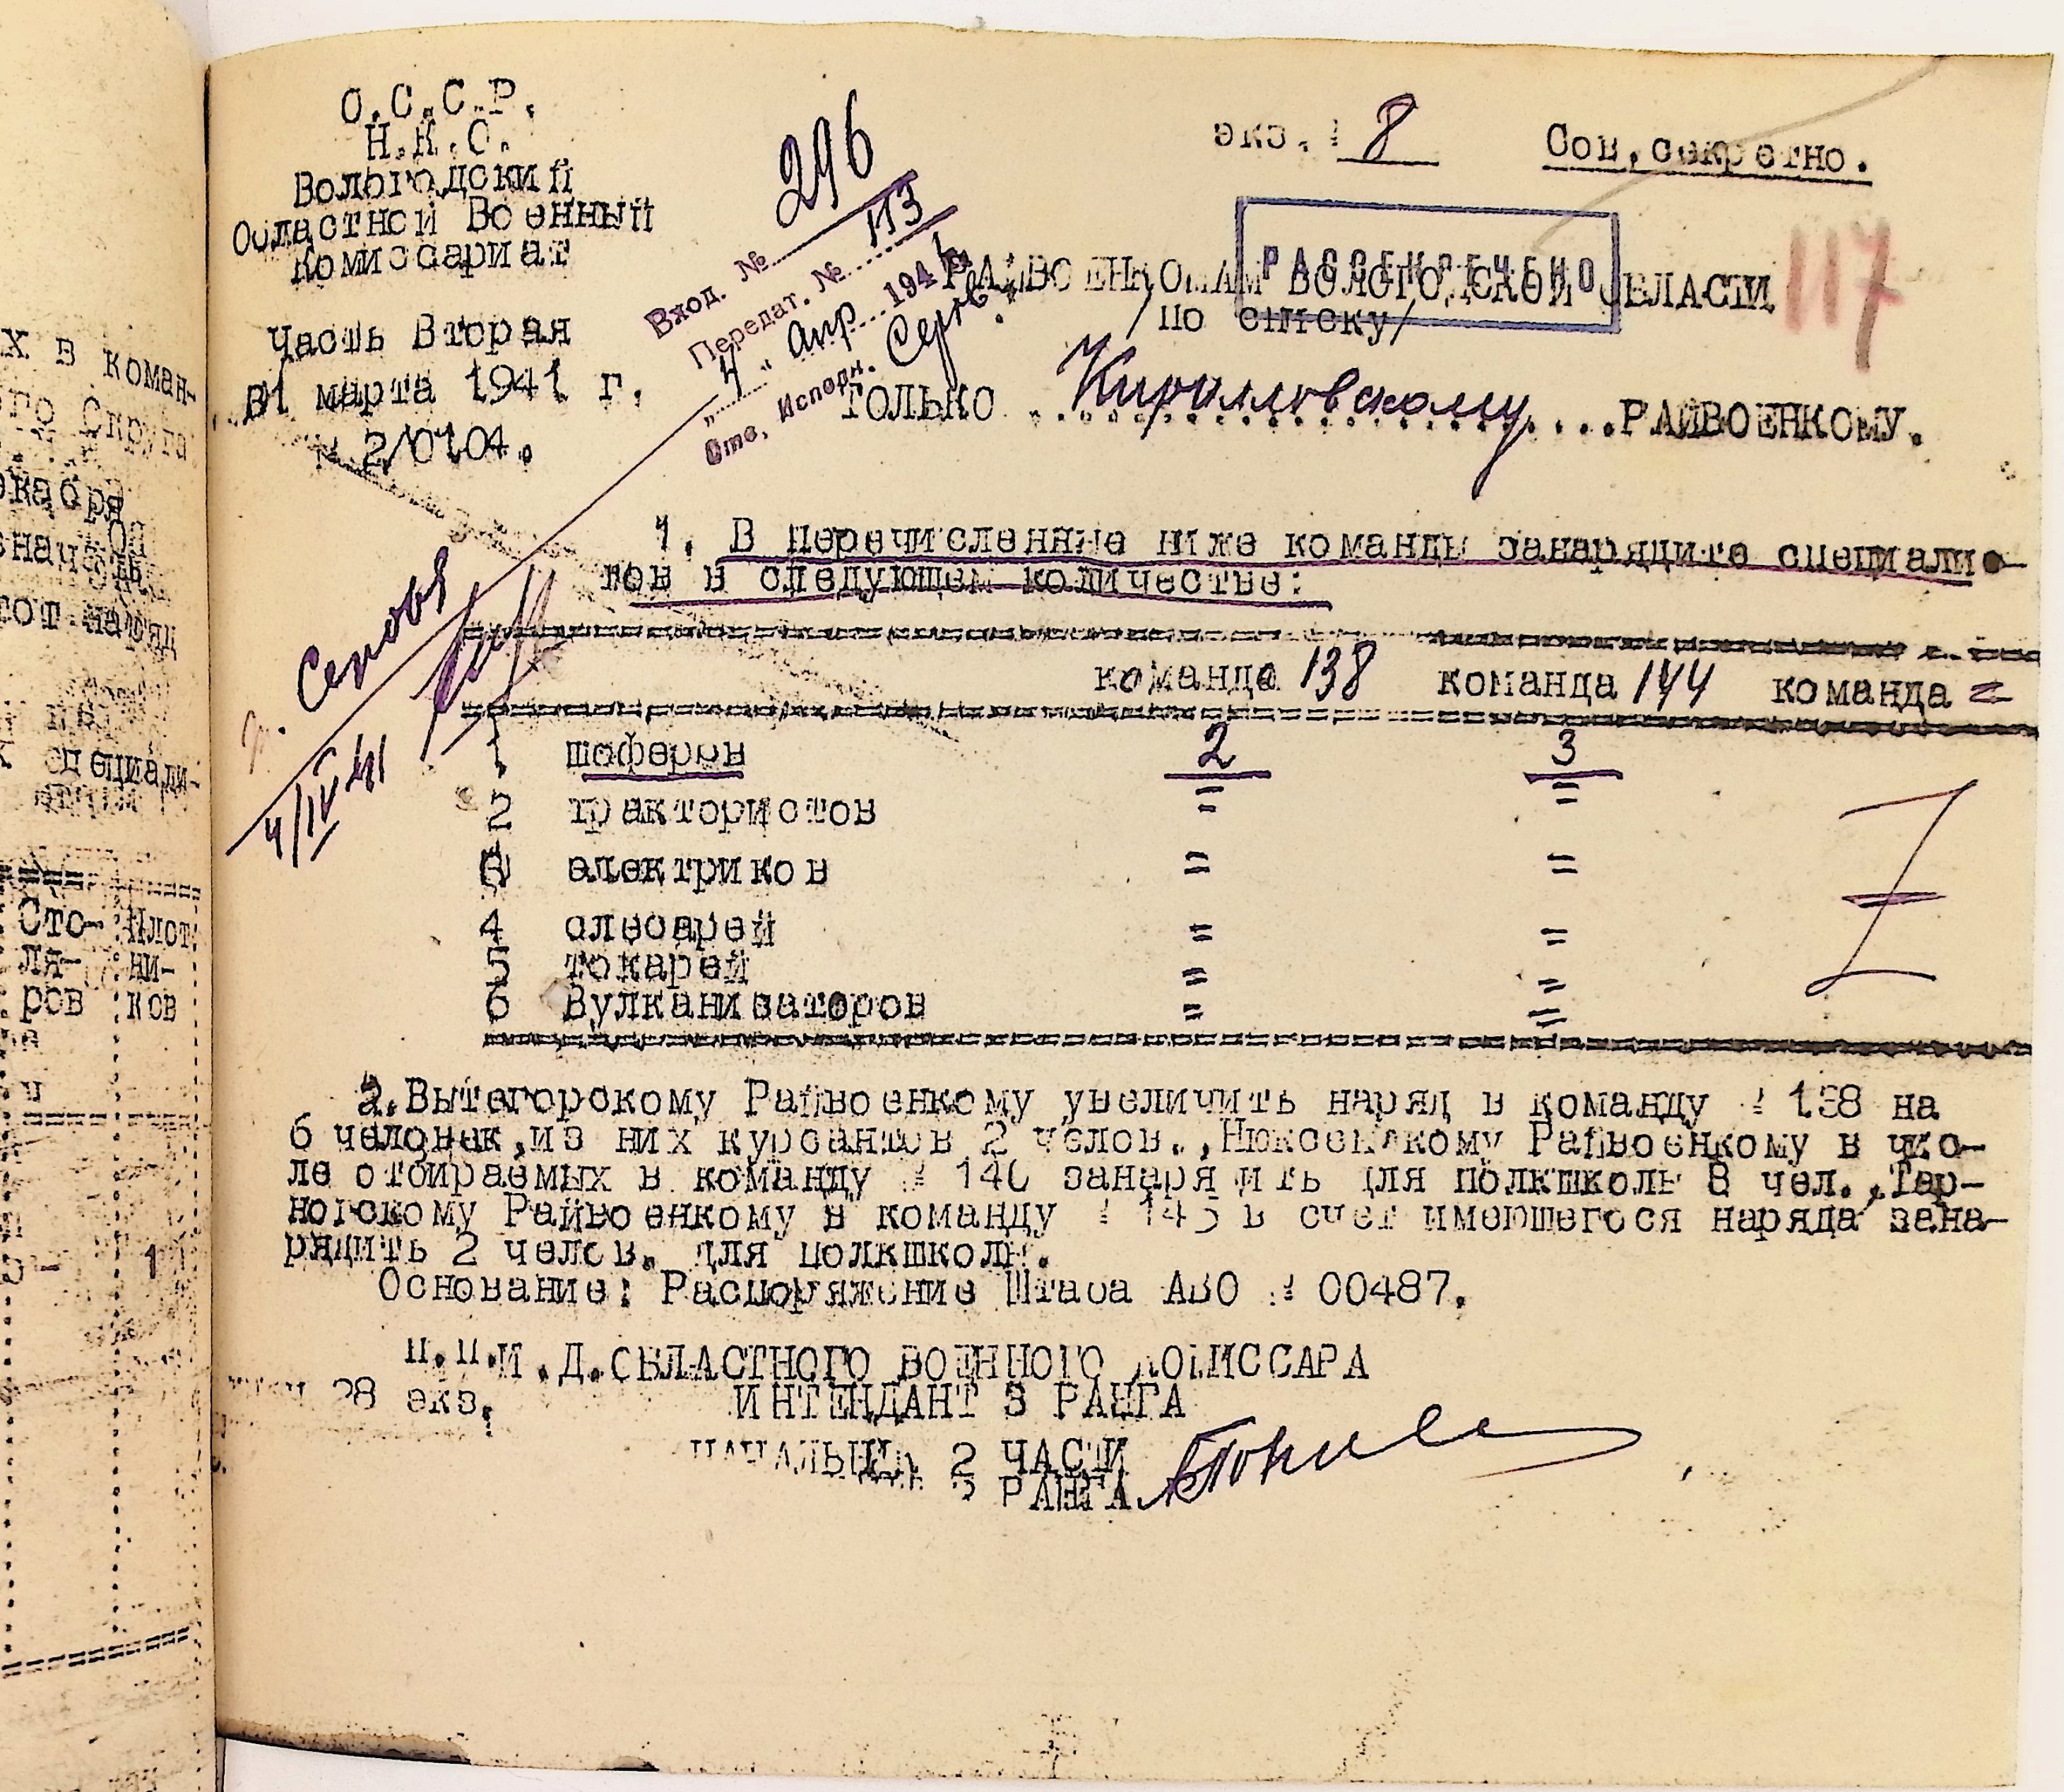 С.С.С.Р.
Н.К.О.
Вологодский
Областной Военный
Комиссариат
Часть Вторая
31 марта 1941 г.
2/0704.
Вход. № 296
Передат. № 113
„4“ апр 1941 г.
Отв. Исполн.
экз. № 8
Сов,секретно.
РАССЕКРЕЧЕНО
117
РАЙВОЕНКОМАМ ВОЛОГОДСКОЙ ОБЛАСТИ
/по списку/
ТОЛЬКО Кирилловскому РАЙВОЕНКОМУ.
4/IV 41
1. В перечисленные ниже команды занарядите специалис-
тов в следующем количестве:
команда 138 команда 144 команда =
1 шоферов 2 3
2 трактористов = =
3 электриков = =
4 слесарей = =
5 токарей = =
6 Вулканизаторов = =
2.Вытегорскому Райвоенкому увеличить наряд в команду № 138 на
6 человек,из них курсантов 2 челов.,Нюксенскому Райвоенкому в чис-
ле отбираемых в команду № 140 занарядить для полкшколы 8 чел.,Тар-
ногскому Райвоенкому в команду № 145 в счет имеющегося наряда зана-
рядить 2 челов. для полкшколы.
Основание: Распоряжение Штаба АВО № 00487.
п.п.И.Д.ОБЛАСТНОГО ВОЕННОГО КОМИССАРА
28 экз.
ИНТЕНДАНТ 3 РАНГА
НАЧАЛЬНИК 2 ЧАСТИ
РАНГА
х в коман-
го Округа
декабря
наряд
специали-
Сто- Плот
ля- ни-
ров ков
1